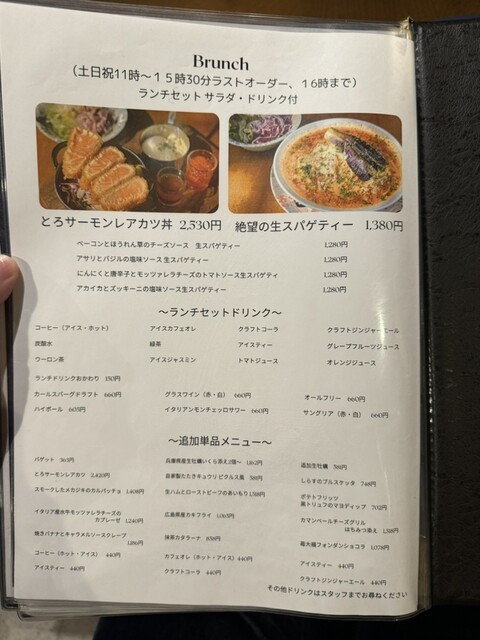 Brunch
(土日祝11時～１５時30分ラストオーダー、１６時まで)
ランチセット サラダ・ドリンク付
とろサーモンレアカツ丼 2,530円 絶望の生スパゲティー 1,380円
ベーコンとほうれん草のチーズソース 生スパゲティー 1,280円
アサリとバジルの塩味ソース生スパゲティー 1,280円
にんにくと唐辛子とモッツァレラチーズのトマトソース生スパゲティ 1,280円
アカイカとズッキーニの塩味ソース生スパゲティー 1,280円
～ランチセットドリンク～
コーヒー（アイス・ホット） アイスカフェオレ クラフトコーラ クラフトジンジャーエール
炭酸水 緑茶 アイスティー グレープフルーツジュース
ウーロン茶 アイスジャスミン トマトジュース オレンジジュース
ランチドリンクおかわり 150円
カールスバーグドラフト 660円 グラスワイン（赤・白） 660円 オールフリー 660円
ハイボール 605円 イタリアンモンチェッロサワー 660円 サングリア（赤・白） 660円
～追加単品メニュー～
バゲット 363円 兵庫県産生牡蠣いくら添え2個～ 1,162円 追加生牡蠣 581円
とろサーモンレアカツ 2,420円 自家製たたきキュウリ ピクルス風 581円 しらすのブルスケッタ 748円
スモークしたメカジキのカルパッチョ 1,408円 生ハムとローストビーフのあいもり 1,518円 ポテトフリッツ
黒トリュフのマヨディップ 702円
イタリア産水牛モッツァレラチーズの
カプレーゼ 1,240円 広島県産カキフライ 1,065円 カマンベールチーズグリル
はちみつ添え 1,518円
焼きバナナとキャラメルソースクレープ
1,186円 抹茶カタラーナ 858円 苺大福フォンダンショコラ 1,078円
コーヒー（ホット・アイス） 440円 カフェオレ（ホット・アイス）440円 アイスティー 440円
アイスティ～ 440円 クラフトコーラ 440円 クラフトジンジャーエール 440円
その他ドリンクはスタッフまでお尋ねください